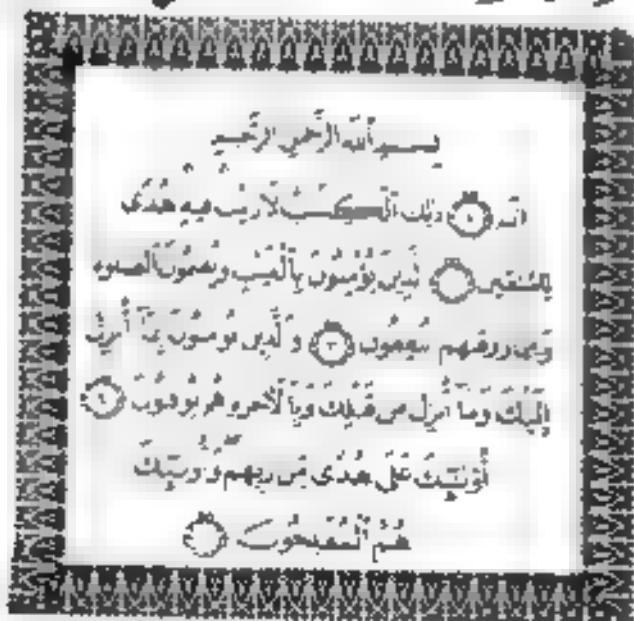 بِسْمِ اللَّهِ الرَّحْمَٰنِ الرَّحِيمِ
الٓمٓ ١ ذَٰلِكَ الْكِتَٰبُ لَا رَيْبَ فِيهِ هُدًى
لِّلْمُتَّقِينَ ٢ الَّذِينَ يُؤْمِنُونَ بِالْغَيْبِ وَيُقِيمُونَ الصَّلَوٰةَ
وَمِمَّا رَزَقْنَٰهُمْ يُنفِقُونَ ٣ وَالَّذِينَ يُؤْمِنُونَ بِمَآ أُنزِلَ
إِلَيْكَ وَمَآ أُنزِلَ مِن قَبْلِكَ وَبِالْآخِرَةِ هُمْ يُوقِنُونَ ٤
أُو۟لَٰٓئِكَ عَلَىٰ هُدًى مِّن رَّبِّهِمْ وَأُو۟لَٰٓئِكَ
هُمُ الْمُفْلِحُونَ ٥